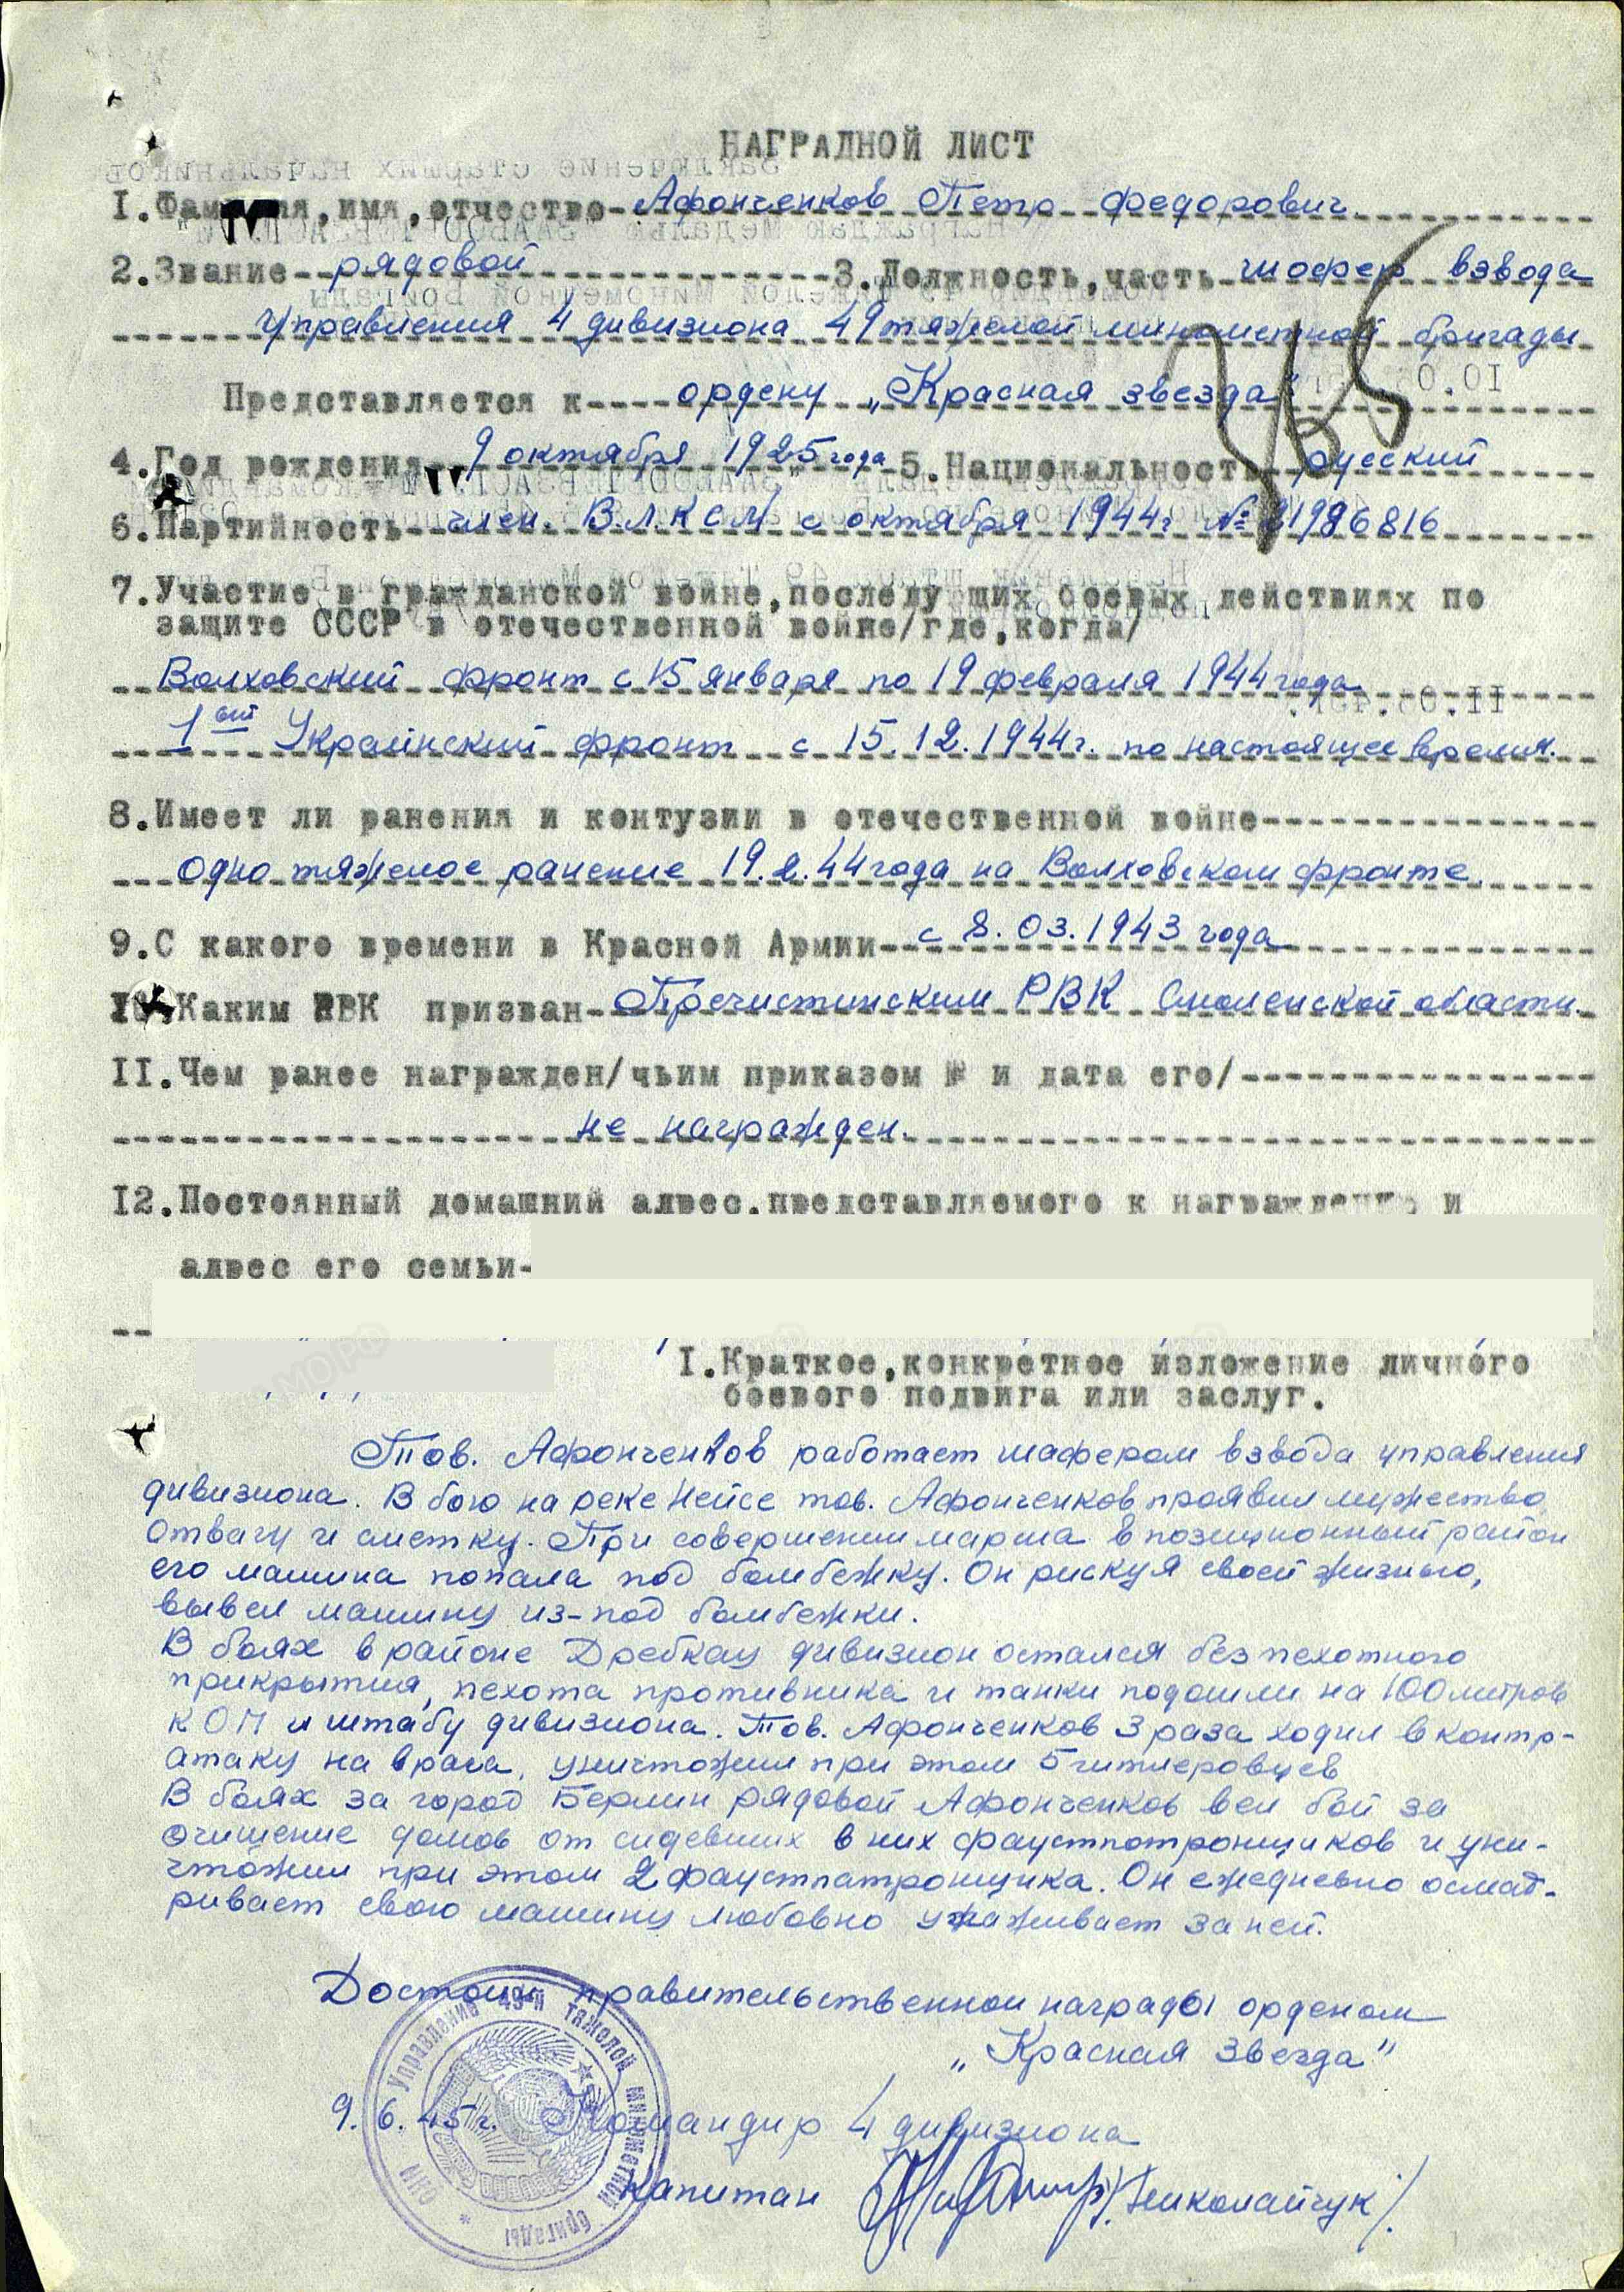 НАГРАДНОЙ ЛИСТ
I.Фамилия,имя,отчество- Афонченков Петр Федорович
2.Звание-- рядовой 3.Должность,часть- шофер взвода
управления 4 дивизиона 49 тяжелой минометной бригады
Представляется к---- ордену „Красная звезда"
4.Год рождения 9 октября 1925 года 5.Национальность- русский
6.Партийность-- член. В.Л.К С М с октября 1944г №
7.Участие в гражданской войне,последующих боевых действиях по
защите СССР в отечественной войне/где,когда/
Волховский фронт с 15 января по 19 февраля 1944 года
1ый Украинский фронт с 15.12.1944г. по настоящее время.
8.Имеет ли ранения и контузии в отечественной войне-
одно тяжелое ранение 19.2.44 года на Волховском фронте.
9.С какого времени в Красной Армии-- с 8.03.1943 года
10.Каким РВК призван- Пречистинским РВК Смоленской области.
II.Чем ранее награжден/чьим приказом № и дата его/-
не награжден.
I2.Постоянный домашний адрес.представляемого к награждению и
адрес его семьи-
I.Краткое,конкретное изложение личного
боевого подвига или заслуг.
Тов. Афонченков работает шафером взвода управления
дивизиона. В бою на реке Нейсе тов. Афонченков проявил мужество
отвагу и сметку. При совершении марша в позиционный район
его машина попала под бомбежку. Он рискуя своей жизнью,
вывел машину из-под бомбежки.
В боях в районе Дребкау дивизион остался без пехотного
прикрытия, пехота противника и танки подошли на 100 метров
к ОП и штабу дивизиона. Тов. Афонченков 3 раза ходил в контр-
атаку на врага, уничтожил при этом 5 гитлеровцев
В боях за город Берлин рядовой Афонченков вел бой за
очищение домов от сидевших в них фаустпотронщиков и уни-
чтожил при этом 2 фаустпатронщика. Он ежедневно осмат-
ривает свою машину любовно ухаживает за ней.
Достоин правительственной награды орденом
„Красная Звезда"
9.6.45 г. Командир 4 дивизиона
капитан /Николайчук/.
Управление 49-й тяжелой минометной бригады * НКО